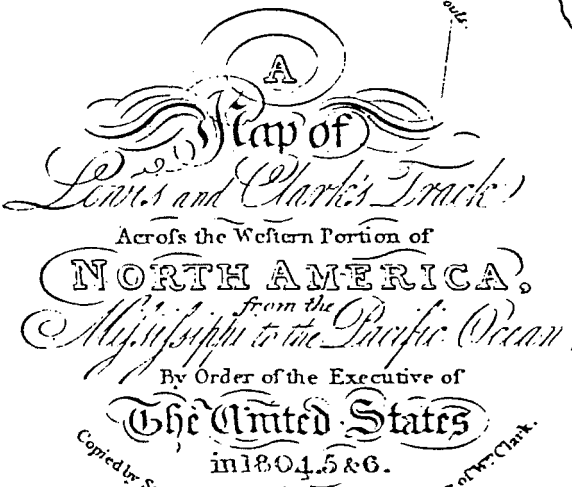 A
Map of
Lewis and Clark's Track,
Acroſs the Weſtern Portion of
NORTH AMERICA,
from the
Miſsiſsippi to the Pacific Ocean
By Order of the Executive of
The United States
in 1804.5 & 6.
Copied by
of Wm. Clark.